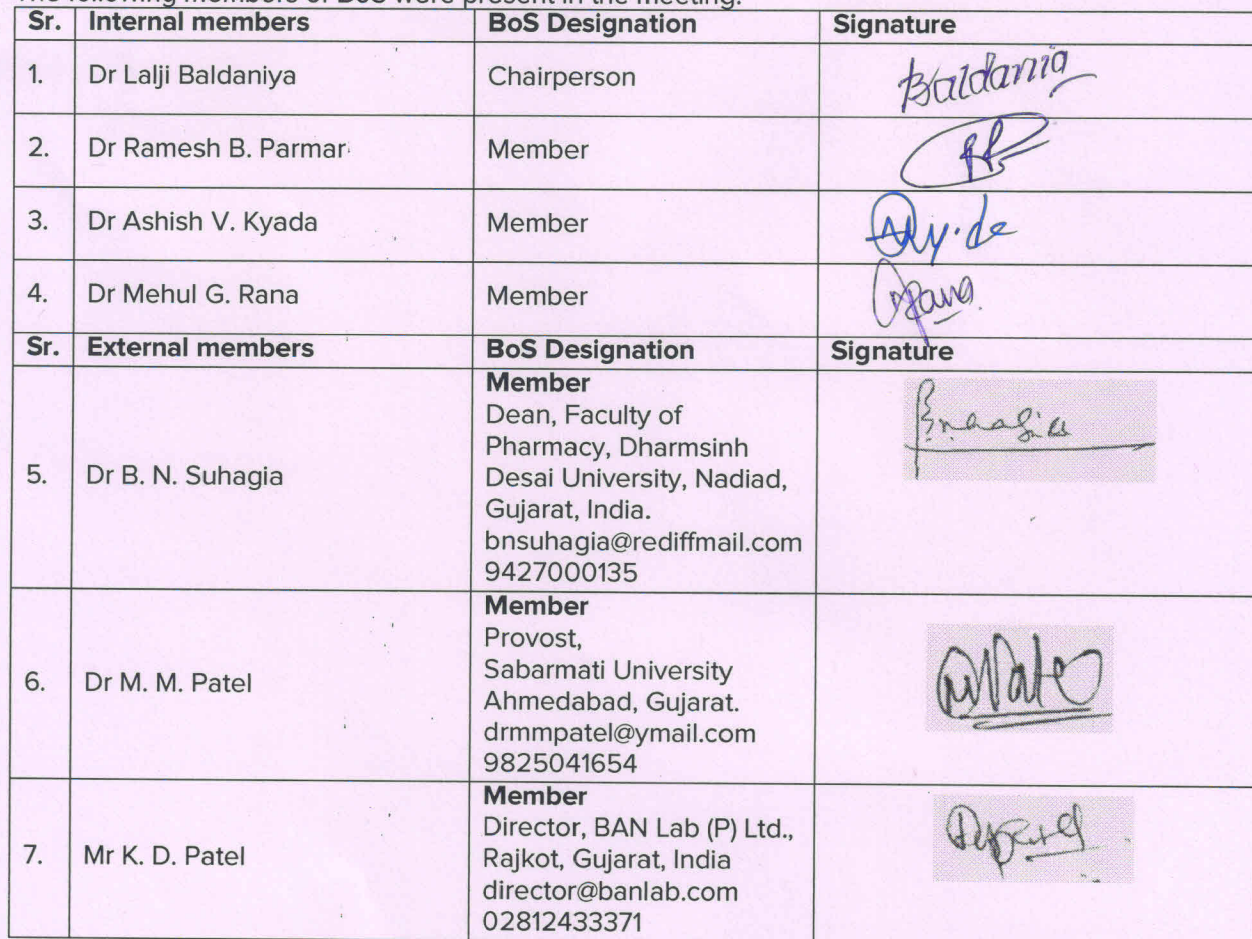 The following members of BoS were present in the meeting.
Sr. Internal members BoS Designation Signature
1. Dr Lalji Baldaniya Chairperson Baldania
2. Dr Ramesh B. Parmar Member
3. Dr Ashish V. Kyada Member
4. Dr Mehul G. Rana Member Rana
Sr. External members BoS Designation Signature
Member
Dean, Faculty of
Pharmacy, Dharmsinh
5. Dr B. N. Suhagia Desai University, Nadiad,
Gujarat, India.
bnsuhagia@rediffmail.com
9427000135
Member
Provost,
Sabarmati University
6. Dr M. M. Patel Ahmedabad, Gujarat.
drmmpatel@ymail.com
9825041654
Member
Director, BAN Lab (P) Ltd.,
7. Mr K. D. Patel Rajkot, Gujarat, India
director@banlab.com
02812433371